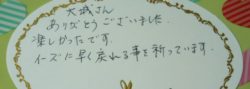 大城さん
ありがとうございました.
楽しかったです.
イーズに早く戻れる事を祈っています.